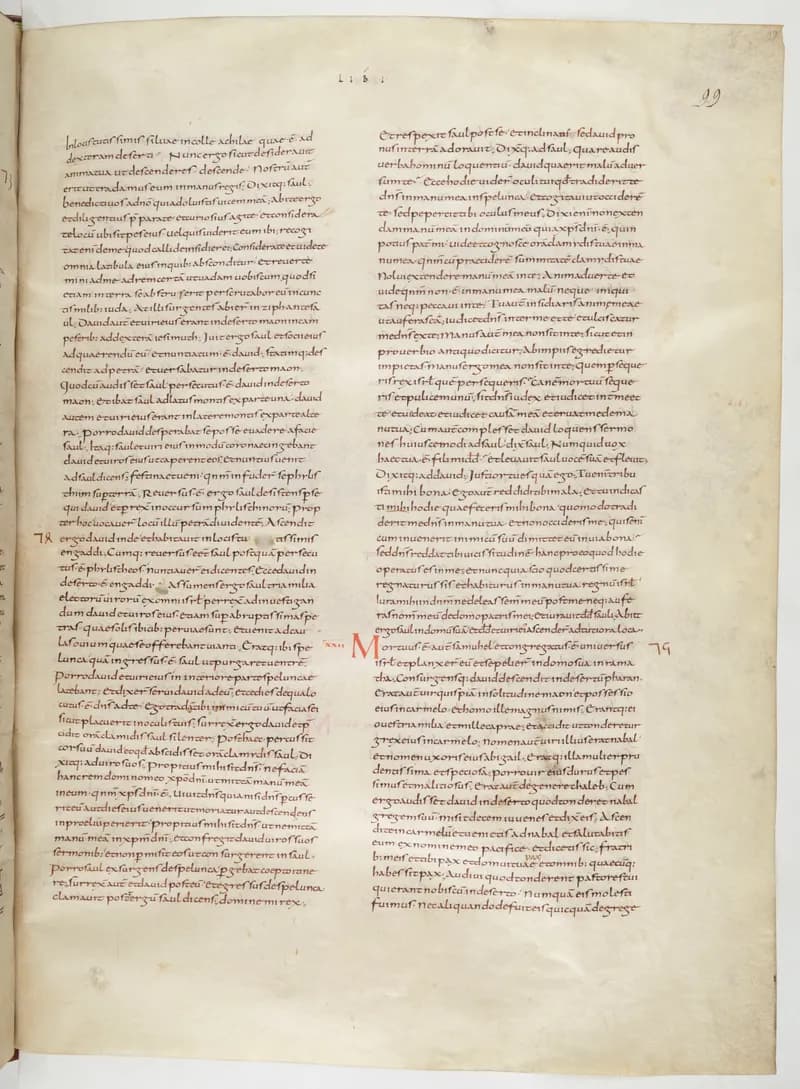 LIB I
99
In locis tutissimis siluae in colle achilae quae ē ad
dexteram deserti Nunc ergo sicut desiderauit
anima tua ut descenderes descende Nostrū aut̄
erit ut tradamus eum in manus regis; Dixitq; saul;
benedicti uos a dn̄o quia doluistis uicem meā; Abite ergo
et diligentius p̄parate et curiosius agite et considera
te locū ubi sit pes eius uel quis uiderit eum ibi; recogi
tat enī de me quod callide insidier ei; Considerate et uidete
omnia latibula eius in quib; absconditur et reuerte
mini ad me ad rem certā ut uadam uobiscum; quod si
etiam in terra se abstruserit perscrutabor eū in cunc
tis milib; iuda; At illi surgentes abier̄ in ziph ante sa
ul; Dauid aut̄ et uiri eius erant in deserto maon in cam
pestrib; ad dexterā iesimuth; Iuit ergo saul et socii eius
ad quaerendū eū et nuntiatum ē dauid; statimq; des
cendit ad petrā et uersabatur in deserto maon;
Quod cū audisset saul persecutus ē dauid in deserto
maon; et ibat saul ad latus montis ex parte una; dauid
autem et uiri eius erant in latere montis ex parte alte
ra; Porro dauid desperabat se posse euadere a facie
saul; Itaq; saul et uiri eius in modū coronae cingebant
dauid et uiros eius ut caperent eos; et nuntius uenit
ad saul dicens; festina et ueni; qnm̄ infuder̄ se philis
thiim sup terrā; Reuersus ē ergo saul desistens p̄se
qui dauid et perrexit in occursum philisthinorū; prop
ter hoc uocauer̄ locū illū petrā diuidentē; Ascendit
78
ergo dauid inde et habitauit in locis tutissimis
engaddi; Cumq; reuersus eēt saul postquā persecu
tus ē philistheos; nuntiauer̄ ei dicentes; Ecce dauid in
deserto ē engaddi; Assumens ergo saul tria milia
electorū uirorū ex omni isrl̄ perrexit ad inuestigan
dum dauid et uiros eius etiam sup abruptissimas pe
tras quae solis ibicib; peruiae sunt; et uenit ad cau
las ouium quae se offerebant uianti; Eratq; ibi spe
lunca quā ingressus ē saul ut purgaret uentrē;
Porro dauid et uiri eius in interiore parte speluncae
latebant; et dixer̄ serui dauid ad eū; Ecce dies de qua lo
cutus ē dn̄s ad te; Ego tradā tibi inimicū tuū ut facias ei
sicut placuerit in oculis tuis; surrexit ergo dauid et p̄
cidit orā clamidis saul silenter; Post haec percussit
cor suū dauid eo qd̄ abscidisset orā clamidis saul; Di
xitq; ad uiros suos; Propitius mihi sit dn̄s ne faciā
hanc rem domino meo xp̄o dn̄i ut mittā manū meā
in eum qnm̄ xp̄s dn̄i ē; Uiuit dn̄s quia nisi dn̄s p̄cusse
rit eū aut dies eius uenerit ut moriatur aut descendens
in proeliū perierit; propitius mihi sit dn̄s ut ne mittā
manū meā in xp̄m dn̄i; et confregit dauid uiros suos
sermonib; et non p̄misit eos ut consurgerent in saul;
Porro saul exsurgens de spelunca p̄gebat coepto itine
re; surrexit aut̄ et dauid post eū; et egressus de spelunca
clamauit post tergū saul dicens; domine mi rex;
Et respexit saul post se; et inclinans se dauid pro
nus in terrā adorauit; Dixitq; ad saul; Quare audis
uerba hominū loquentiū; dauid quaerit malū aduer
sum te; Ecce hodie uider̄ oculi tui qd̄ tradiderit te
dn̄s in manu mea in spelunca; et cogitaui ut occiderē
te sed pepercit tibi oculus meus; Dixi enī non exten
dam manū meā in dominū meū quia xp̄s dn̄i ē; quin
potius pat̄ mi uide et cognosce orā clamidis tuae in ma
nu mea; qnm̄ cū praeciderē summitatē clamidis tuae
nolui extendere manū meā in te; Animaduerte et
uide qnm̄ non ē in manu mea malū neque iniqui
tas neq; peccaui in te; Tu aut̄ insidiaris animae meae
ut auferas eā; iudicet dn̄s inter me et te et ulciscatur
me dn̄s ex te; Manus aut̄ mea non sit in te; sicut et in
prouerbio antiquo dicitur; Ab impiis egredietur
impietas; manus ergo mea non sit in te; Quem p̄seque
ris rex isrl̄ quē persequeris; Canē mortuū seque
ris et pulicem unū; sit dn̄s iudex et iudicet int̄ me et
te et uideat et iudicet causā meā et eruat me de ma
nu tua; Cum aut̄ complesset dauid loquens sermo
nes huiuscemodi ad saul; dix̄ saul; Numquid uox
haec tua ē fili mi dd̄; et leuauit saul uocē suā et fleuit;
Dixitq; ad dauid; Iustior tu es quā ego; Tu enī tribu
isti mihi bona; ego aut̄ reddidi tibi mala; et tu indicas
ti mihi hodie quae feceris mihi bona quomodo tradi
derit me dn̄s in manu tua et non occideris me; quis enī
cum inuenerit inimicū suū dimittet eū in uia bona;
sed dn̄s reddat tibi uicissitudinē hanc pro eo quod hodie
operatus es in me; et nunc quia scio quod certissime
regnaturus sis et habiturus in manu tua regnū isrl̄
iura mihi in dn̄m ne deleas sem̄ meū post me neq; aufe
ras nom̄ meū de domo patris mei; et iurauit dd̄ sauli; Abiit
ergo saul in domū suā et dd̄ et uiri eius ascender̄ ad tutiora loca
XXII
79
Mortuus ē aut̄ samuhel et congregatus ē uniuersus
isrl̄ et planxer̄ eū et sepelier̄ in domo sua in rama
tha; Consurgensq; dauid descendit in desertū pharan;
Erat aut̄ uir quispiā in solitudine maon et possessio
eius in carmelo; et homo ille magnus nimis; Erantq; ei
oues tria milia et mille caprae; et accidit ut tonderetur
grex eius in carmelo; nomen aut̄ uiri illius erat nabal
et nomen uxoris eius abigail; Eratq; illa mulier pru
dentissima et speciosa; porro uir eius durus et pes
simus et malitiosus; Erat aut̄ de genere chaleb; Cum
ergo audisset dauid in deserto quod tonderet nabal
gregem suū misit decem iuuenes et dix̄ eis; Ascen
dite in carmelū et uenietis ad nabal et salutabitis
eum ex nomine meo pacifice; et dicetis sic; fratri
b; meis et tibi pax et domui tuae pax et omnib; quaecūq;
habes sit pax; Audiui quod tonderent pastores tui
qui erant nobiscū in deserto; Numquā eis molesti
fuimus; nec aliquando defuit eis quicquā de grege